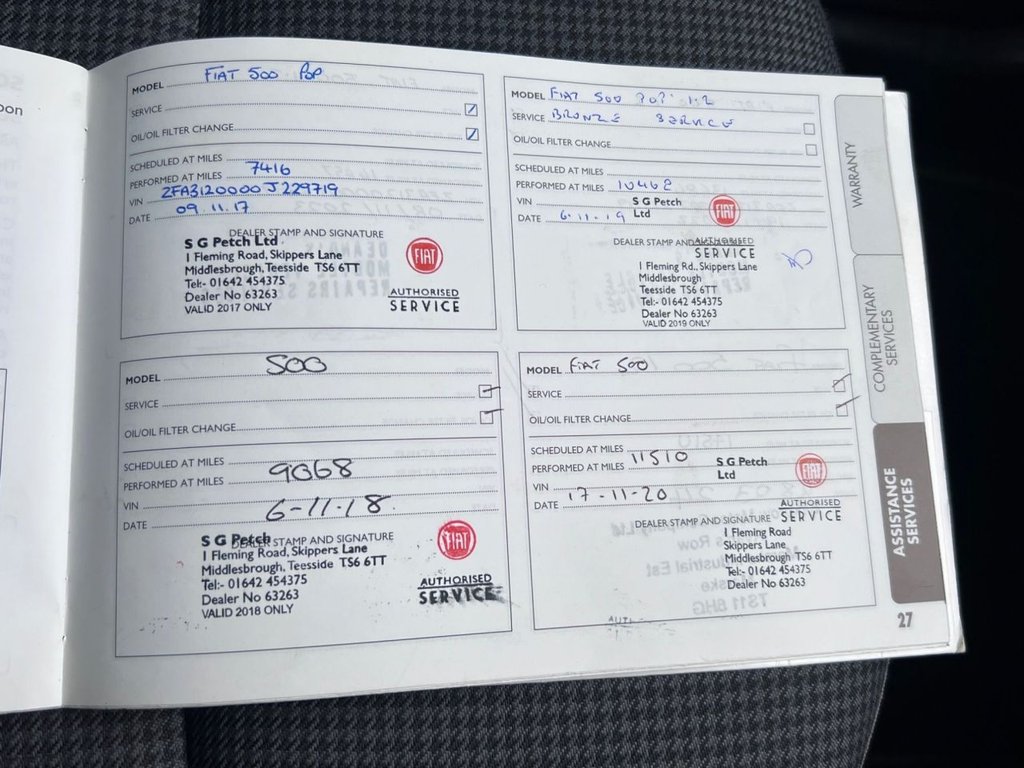 on
MODEL FIAT 500 POP
SERVICE
OIL/OIL FILTER CHANGE
SCHEDULED AT MILES
PERFORMED AT MILES 7416
VIN ZFA3120000J229719
DATE 09.11.17
DEALER STAMP AND SIGNATURE
S G Petch Ltd
1 Fleming Road, Skippers Lane
Middlesbrough, Teesside TS6 6TT
Tel:- 01642 454375
Dealer No 63263
VALID 2017 ONLY
FIAT
AUTHORISED
SERVICE
MODEL FIAT 500 POP 1.2
SERVICE BRONZE SERVICE
OIL/OIL FILTER CHANGE
SCHEDULED AT MILES
PERFORMED AT MILES 10462
VIN
DATE 6-11-19
S G Petch
Ltd
FIAT
DEALER STAMP AND
AUTHORISED
SERVICE
1 Fleming Rd., Skippers Lane
Middlesbrough
Teesside TS6 6TT
Tel:- 01642 454375
Dealer No 63263
VALID 2019 ONLY
MODEL 500
SERVICE
OIL/OIL FILTER CHANGE
SCHEDULED AT MILES
PERFORMED AT MILES 9068
VIN
DATE 6-11-18.
DEALER STAMP AND SIGNATURE
S G Petch
1 Fleming Road, Skippers Lane
Middlesbrough, Teesside TS6 6TT
Tel:- 01642 454375
Dealer No 63263
VALID 2018 ONLY
FIAT
AUTHORISED
SERVICE
MODEL FIAT 500
SERVICE
OIL/OIL FILTER CHANGE
SCHEDULED AT MILES
PERFORMED AT MILES 11510
VIN
DATE 17-11-20
S G Petch
Ltd
FIAT
DEALER STAMP AND SIGNATURE
AUTHORISED
SERVICE
1 Fleming Road
Skippers Lane
Middlesbrough TS6 6TT
Tel:- 01642 454375
Dealer No 63263
WARRANTY
COMPLEMENTARY
SERVICES
ASSISTANCE
SERVICES
27